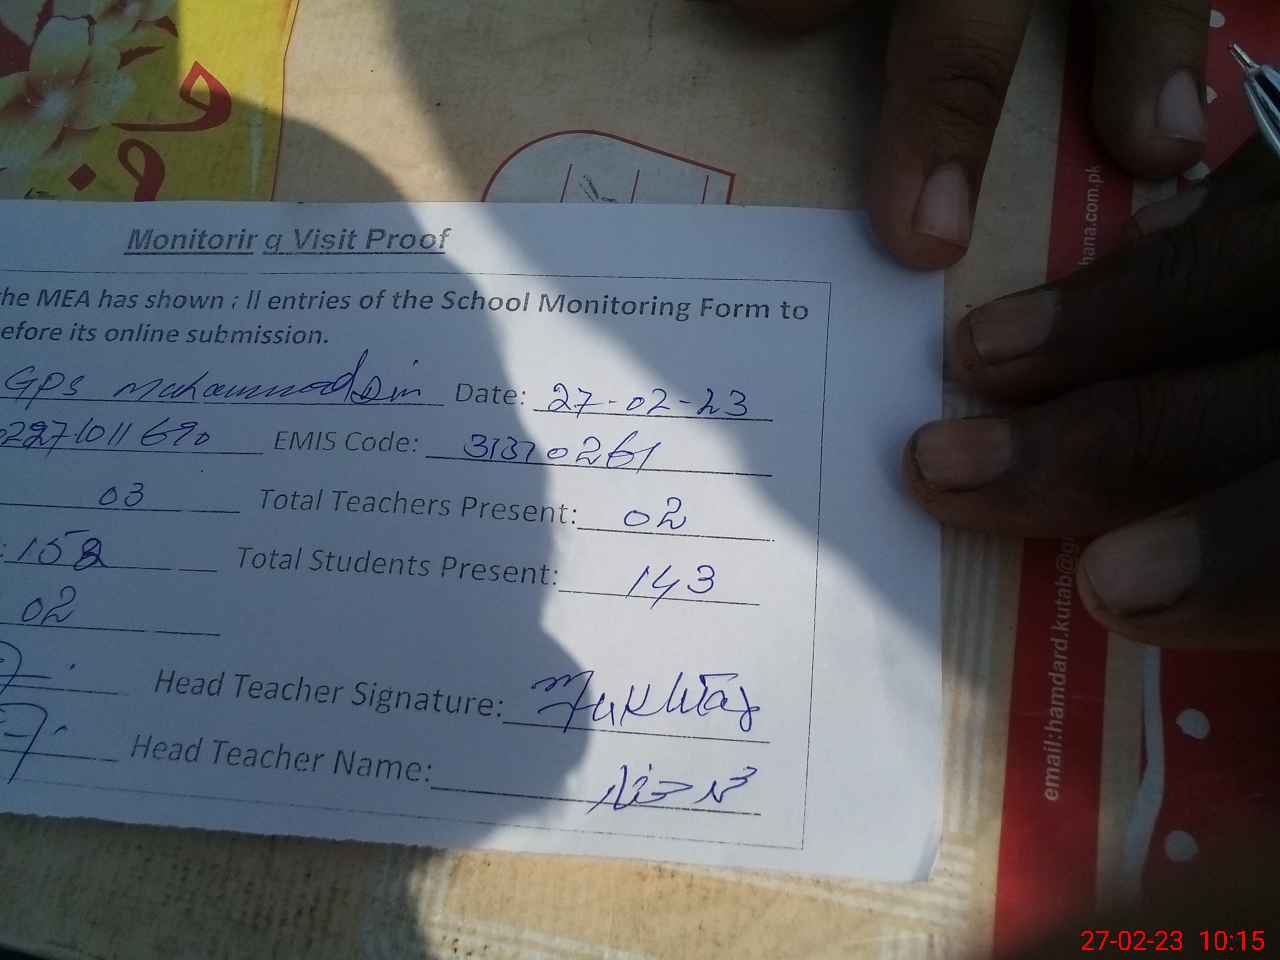 Monitorir g Visit Proof
he MEA has shown : ll entries of the School Monitoring Form to
efore its online submission.
GPS Muhammad Din Date: 27-02-23
02271011690 EMIS Code: 31370261
03 Total Teachers Present: 02
: 152 Total Students Present: 143
02
Head Teacher Signature: Mukhtar
Head Teacher Name: محمد مختار
hana.com.pk
email:hamdard.kutab@g
27-02-23 10:15